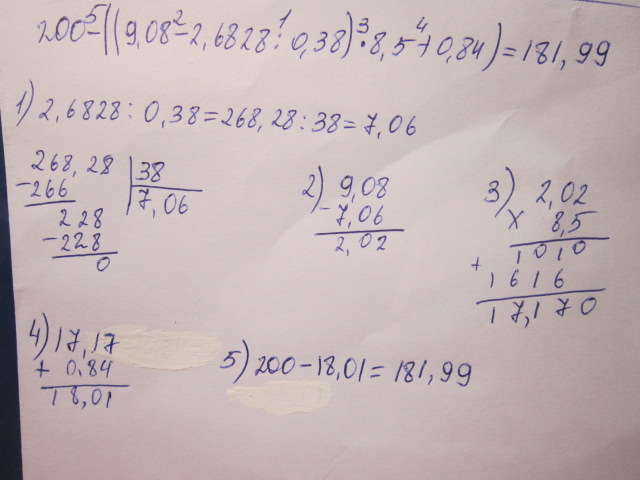 200-((9,08-2,6828:0,38)·8,5+0,84)=181,99
5 2 1 3 4
1) 2,6828:0,38=268,28:38=7,06
268,28 |38
-266 7,06
228
-228
0
2) 9,08
- 7,06
2,02
3) 2,02
× 8,5
1010
+ 1616
17,170
4) 17,17
+ 0,84
18,01
5) 200-18,01=181,99